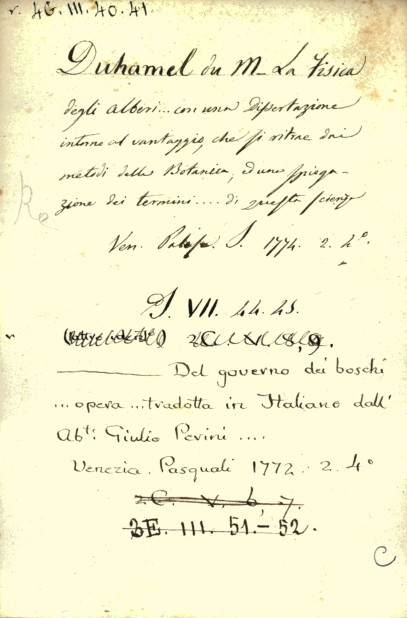 r. 4G. III. 40. 41.
Duhamel du M— La Fisica
degli alberi... con una Dissertazione
intorno al vantaggio, che si ritrae dai
metodi della Botanica, ed una spiega-
zione dei termini.... di questa scienza
Ven. Pasq. S. 1774. 2. 4°.
D. VII. 44. 45.
2C. V. 8, 9.
Del governo dei boschi
... opera ... tradotta in Italiano dall'
Ab.t: Giulio Perini ....
Venezia. Pasquali 1772. 2. 4°
2C. V. 6, 7.
3E. III. 51.-52.
C